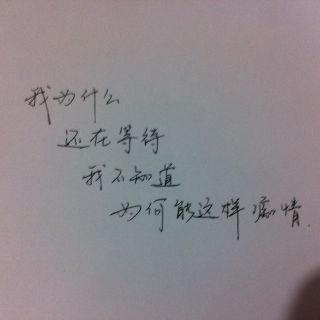 我为什么
还在等待
我不知道
为何能这样痴情.